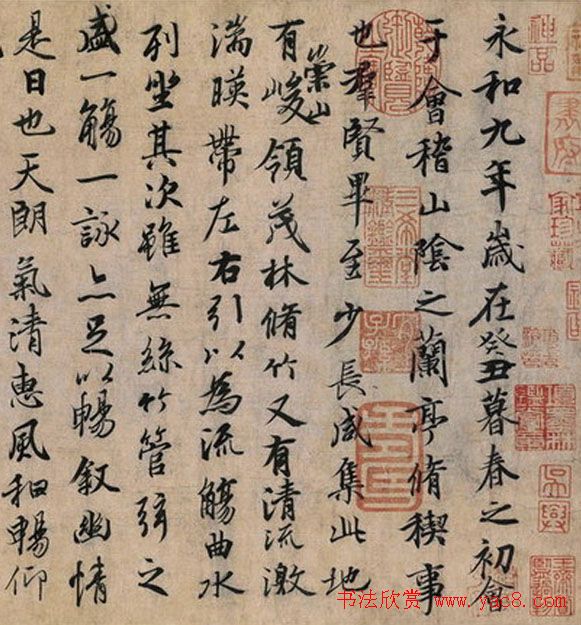 神品
永和九年歲在癸丑暮春之初會
于會稽山陰之蘭亭脩稧事
也羣賢畢至少長咸集此地
有崇山峻領茂林脩竹又有清流激
湍暎帶左右引以為流觴曲水
列坐其次雖無絲竹管弦之
盛一觴一詠亦足以暢敘幽情
是日也天朗氣清惠風和暢仰
三希堂精鑑璽
宜子孫
书法欣赏 www.yac8.com